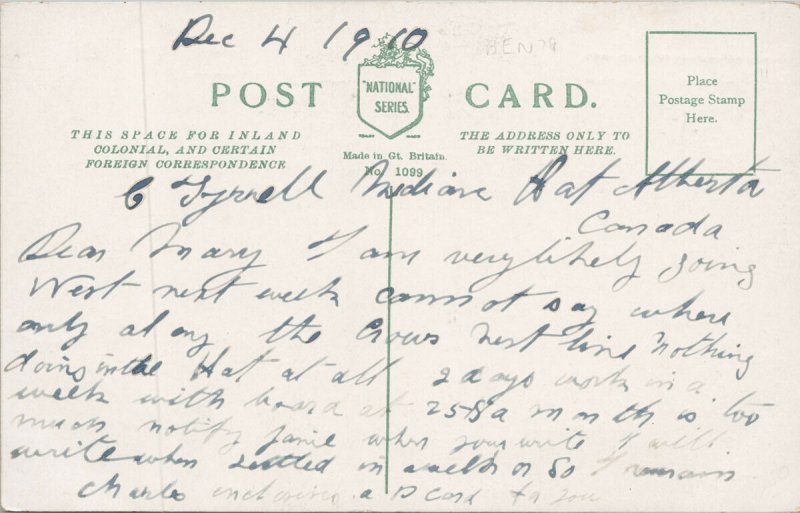 Dec 4 1910
BEN79
"NATIONAL"
SERIES.
POST CARD.
Place
Postage Stamp
Here.
THIS SPACE FOR INLAND
COLONIAL, AND CERTAIN
FOREIGN CORRESPONDENCE
THE ADDRESS ONLY TO
BE WRITTEN HERE.
Made in Gt. Britain.
No. 1099
C Tyrrell Medicine Hat Alberta
Canada
Dear Mary I am very likely going
West next week cannot say where
only along the Crows nest line nothing
doing in the Hat at all 2 days work in a
week with board at 25-$ a month is too
much notify Janie when you write I will
write when settled in week or so I remain
Charles enclosing a P Card to you